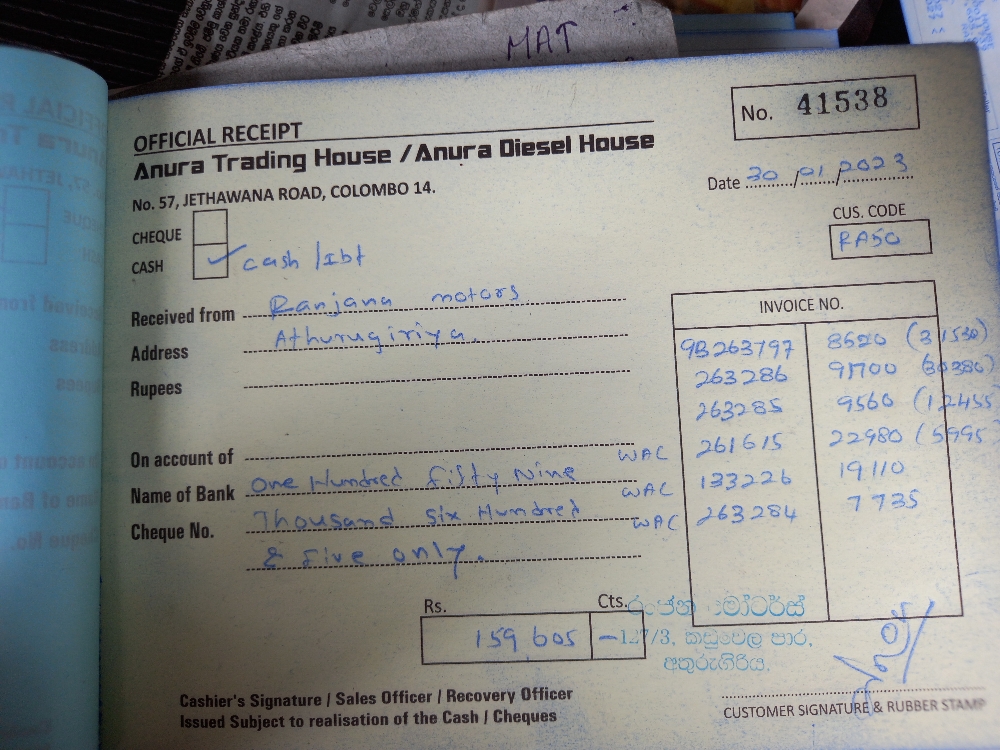 MAT
No. 41538
OFFICIAL RECEIPT
Anura Trading House / Anura Diesel House
No. 57, JETHAWANA ROAD, COLOMBO 14.
Date 30/01/2023
CUS. CODE
RA50
CHEQUE
CASH ✓ cash /Ibt
Received from Ranjana motors
Address Athurugiriya.
Rupees
On account of
Name of Bank One Hundred fifty Nine
Cheque No. Thousand Six Hundred
& five only.
INVOICE NO.
9B263797 8620 (31530)
263286 91700 (30380)
263285 9560 (12455
WAC 261615 22980 (5995
WAC 133226 19110
WAC 263284 7735
Rs. Cts.
159 605 —
මෝටර්ස්
127/3, කඩුවෙල පාර,
අතුරුගිරිය.
Cashier's Signature / Sales Officer / Recovery Officer
Issued Subject to realisation of the Cash / Cheques
CUSTOMER SIGNATURE & RUBBER STAMP